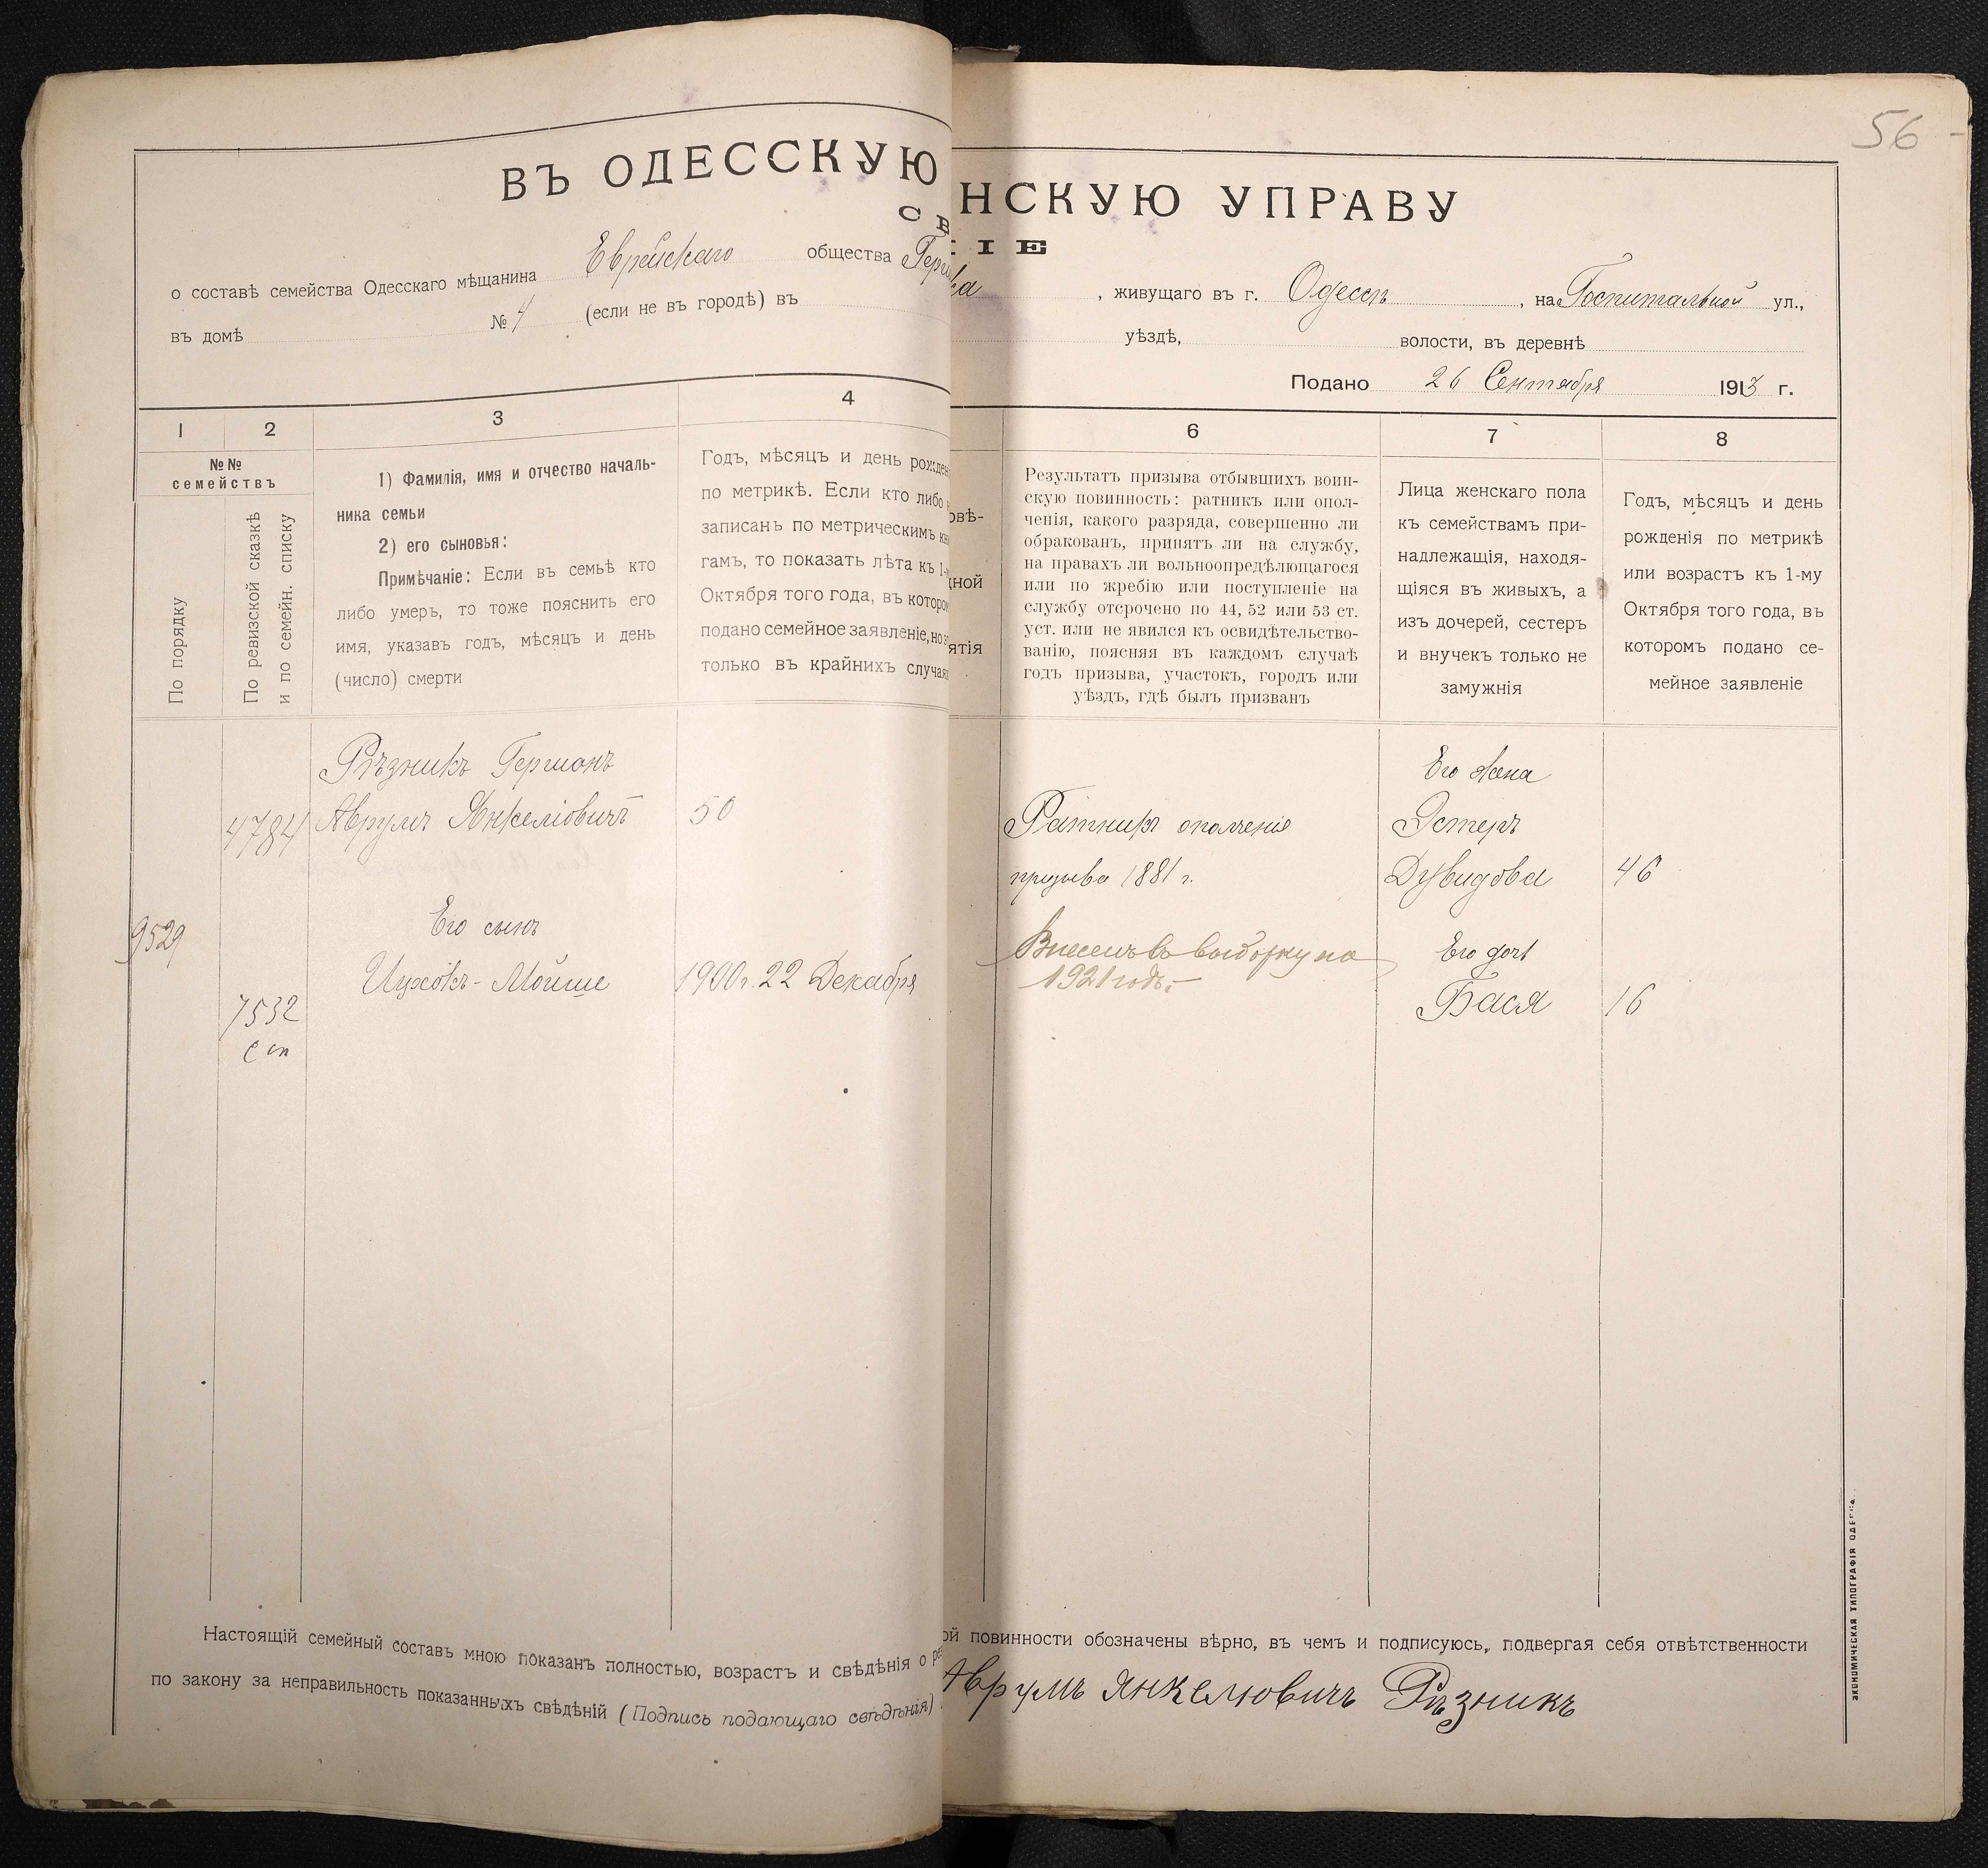 56
ВЪ ОДЕССКУЮ
НСКУЮ УПРАВУ
СВ
ІЕ
о составѣ семейства Одесскаго мѣщанина Еврейскаго общества
, живущаго въ г. Одессѣ, на Госпитальной ул.,
въ домѣ № 4 (если не въ городѣ) въ
уѣздѣ, волости, въ деревнѣ
Подано 26 Сентября 1913 г.
1
2
3
4
6
7
8
№№
семействъ
По порядку
По ревизской сказкѣ
и по семейн. списку
1) Фамилія, имя и отчество началь-
ника семьи
2) его сыновья:
Примѣчаніе: Если въ семьѣ кто
либо умеръ, то тоже пояснить его
имя, указавъ годъ, мѣсяцъ и день
(число) смерти
Годъ, мѣсяцъ и день рожден
по метрикѣ. Если кто либо
записанъ по метрическимъ кн
гамъ, то показать лѣта къ 1-
Октября того года, въ котором
подано семейное заявленіе, но
только въ крайнихъ случая
овѣ-
ной
ятія
Результатъ призыва отбывшихъ воин-
скую повинность: ратникъ или опол-
ченія, какого разряда, совершенно ли
обракованъ, принятъ ли на службу,
на правахъ ли вольноопредѣляющагося
или по жребію или поступленіе на
службу отсрочено по 44, 52 или 53 ст.
уст. или не явился къ освидѣтельство-
ванію, поясняя въ каждомъ случаѣ
годъ призыва, участокъ, городъ или
уѣздъ, гдѣ былъ призванъ
Лица женскаго пола
къ семействамъ при-
надлежащія, находя-
щіяся въ живыхъ, а
изъ дочерей, сестеръ
и внучекъ только не
замужнія
Годъ, мѣсяцъ и день
рожденія по метрикѣ
или возрастъ къ 1-му
Октября того года, въ
которомъ подано се-
мейное заявленіе
Рѣзникъ Гершонъ
4784 Аврумъ Янкеліовичъ 50
9529
Его сынъ
Ицхокъ-Мойше 1900 г. 22 Декабря
7532
сп
Ратникъ ополченія
призыва 1881 г.
Внесенъ въ выборку на
1921 годъ.
Его жена
Эстеръ
Дувидова 46
Его доч
Бася 16
Настоящій семейный составъ мною показанъ полностью, возрастъ и свѣдѣнія о
ой повинности обозначены вѣрно, въ чемъ и подписуюсь, подвергая себя отвѣтственности
по закону за неправильность показанныхъ свѣдѣній (Подпись подающаго свѣдѣнія)
Аврумъ Янкелювичъ Рѣзникъ
ЭКОНОМИЧЕСКАЯ ТИПОГРАФІЯ ОДЕССА.